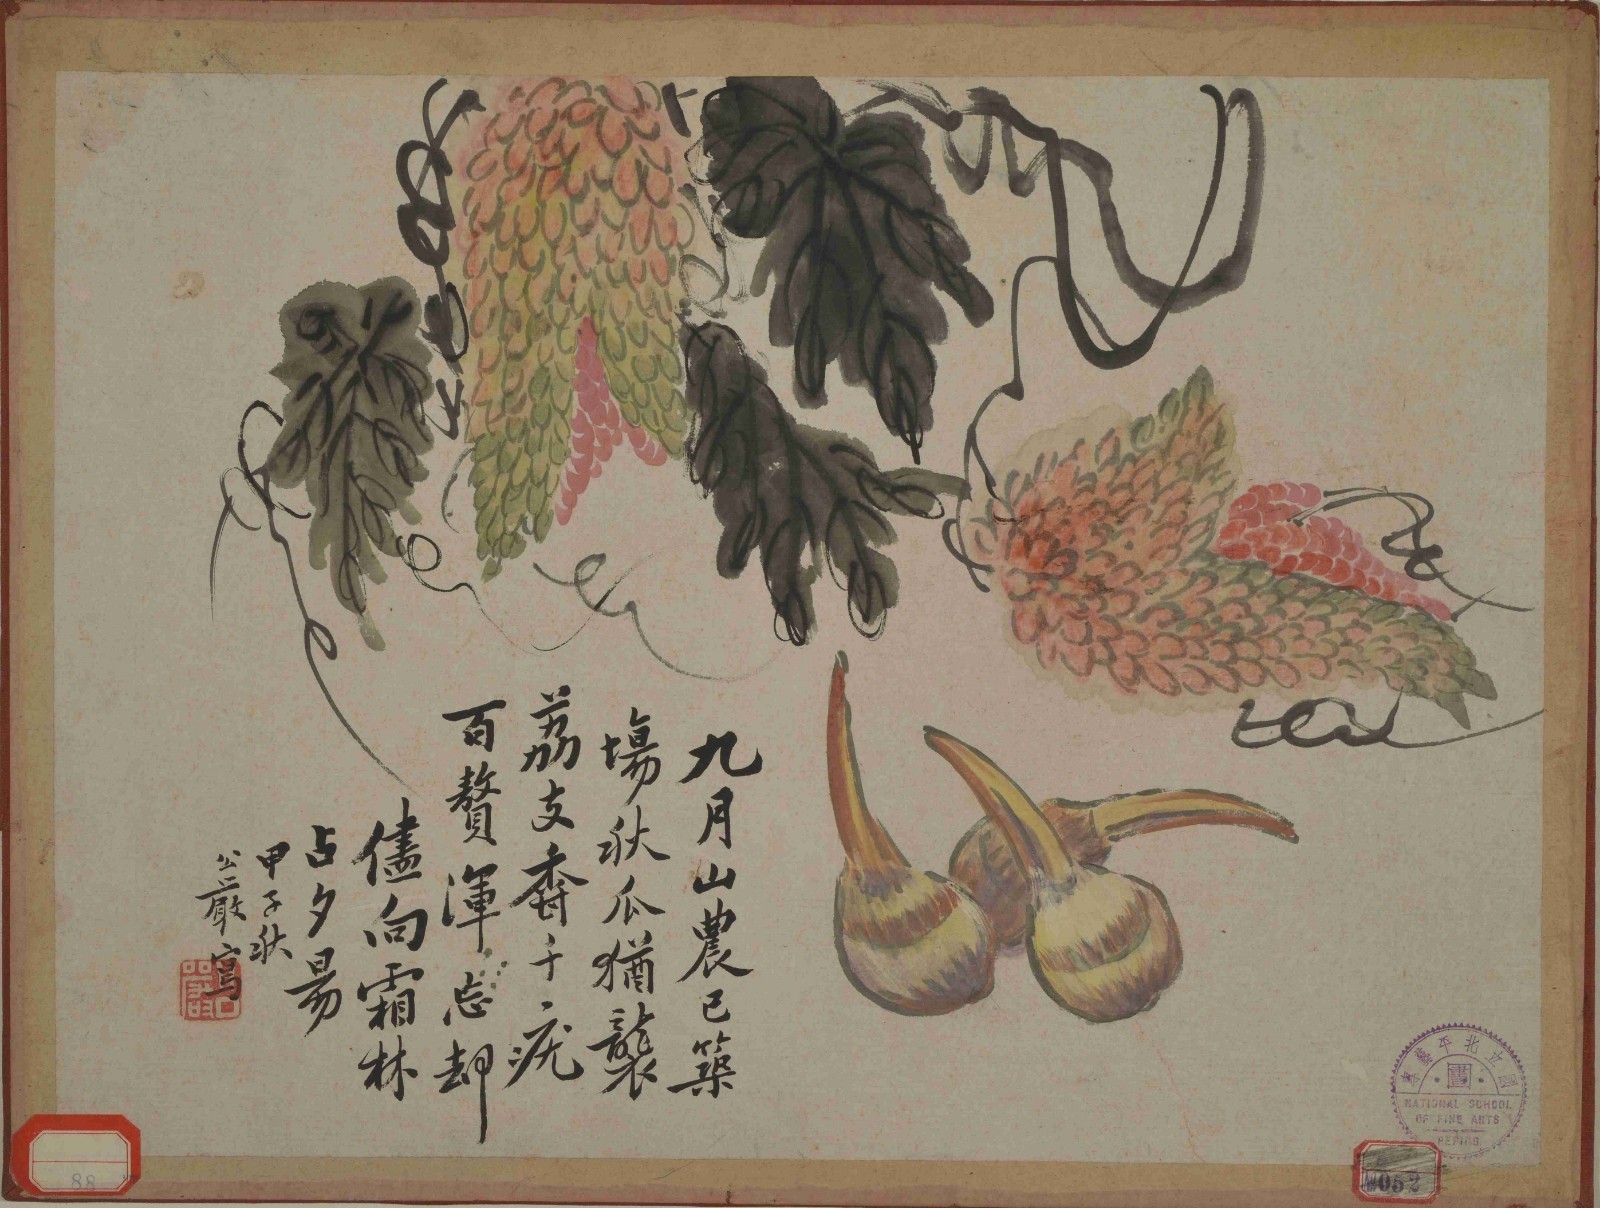 九月山農已築
場秋瓜猶襲
荔支香千疣
百贅渾忘却
儘向霜林
占夕昜
甲子秋
公嚴寫
國立北平藝
圖
NATIONAL SCHOOL
OF FINE ARTS
PEPING
88
052